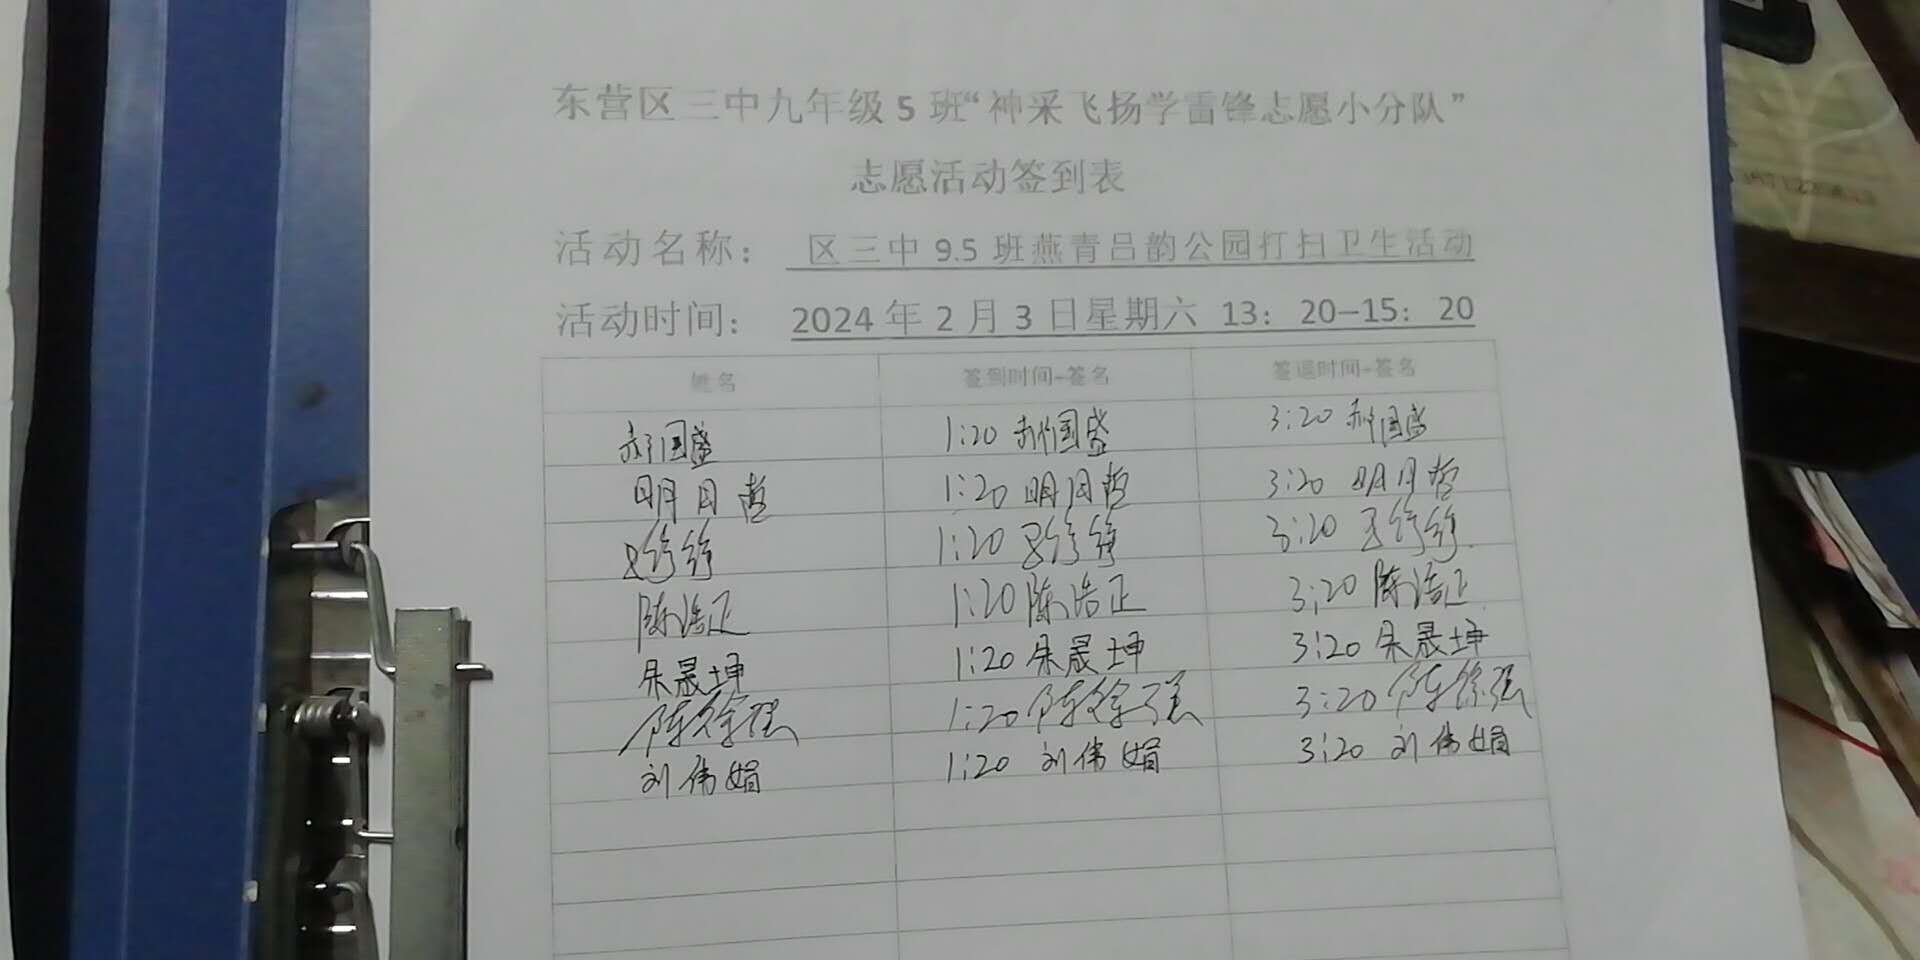 东营区三中九年级 5 班“神采飞扬学雷锋志愿小分队”
志愿活动签到表
活动名称： 区三中 9.5 班燕青吕韵公园打扫卫生活动
活动时间： 2024 年 2 月 3 日星期六 13：20—15：20
姓名 签到时间+签名 签退时间+签名
郝国盛 1:20 郝国盛 3:20 郝国盛
明月哲 1:20 明月哲 3:20 明月哲
1:20 3:20
陈浩正 1:20 陈浩正 3:20 陈浩正
朱晟坤 1:20 朱晟坤 3:20 朱晟坤
陈徐强 1:20 陈徐强 3:20 陈徐强
刘伟娟 1:20 刘伟娟 3:20 刘伟娟